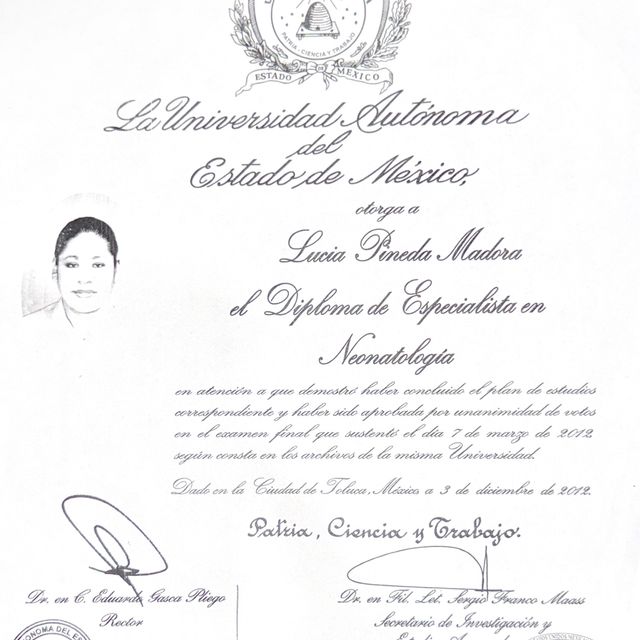 PATRIA, CIENCIA Y TRABAJO
ESTADO MEXICO
La Universidad Autónoma
del
Estado de México,
otorga a
Lucia Pineda Madora
el Diploma de Especialista en
Neonatología
en atención a que demostró haber concluido el plan de estudios
correspondiente y haber sido aprobada por unanimidad de votos
en el examen final que sustentó el día 7 de marzo de 2012,
según consta en los archivos de la misma Universidad.
Dado en la Ciudad de Toluca, México a 3 de diciembre de 2012.
Patria, Ciencia y Trabajo.
Dr. en C. Eduardo Gasca Pliego
Rector
Dr. en Fil. Let. Sergio Franco Maass
Secretario de Investigación y